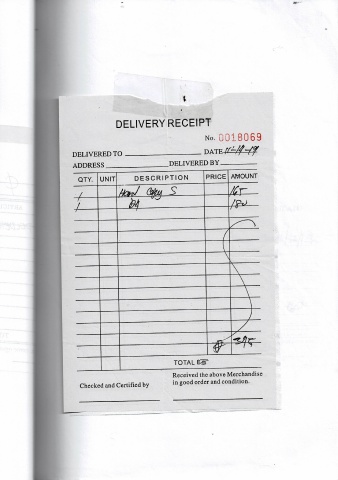 DELIVERY RECEIPT
No. 0018069
DELIVERED TO DATE
ADDRESS DELIVERED BY
QTY. UNIT DESCRIPTION PRICE AMOUNT
1 Hard Copy S 165
1 180
TOTAL
Checked and Certified by
Received the above Merchandise
in good order and condition.